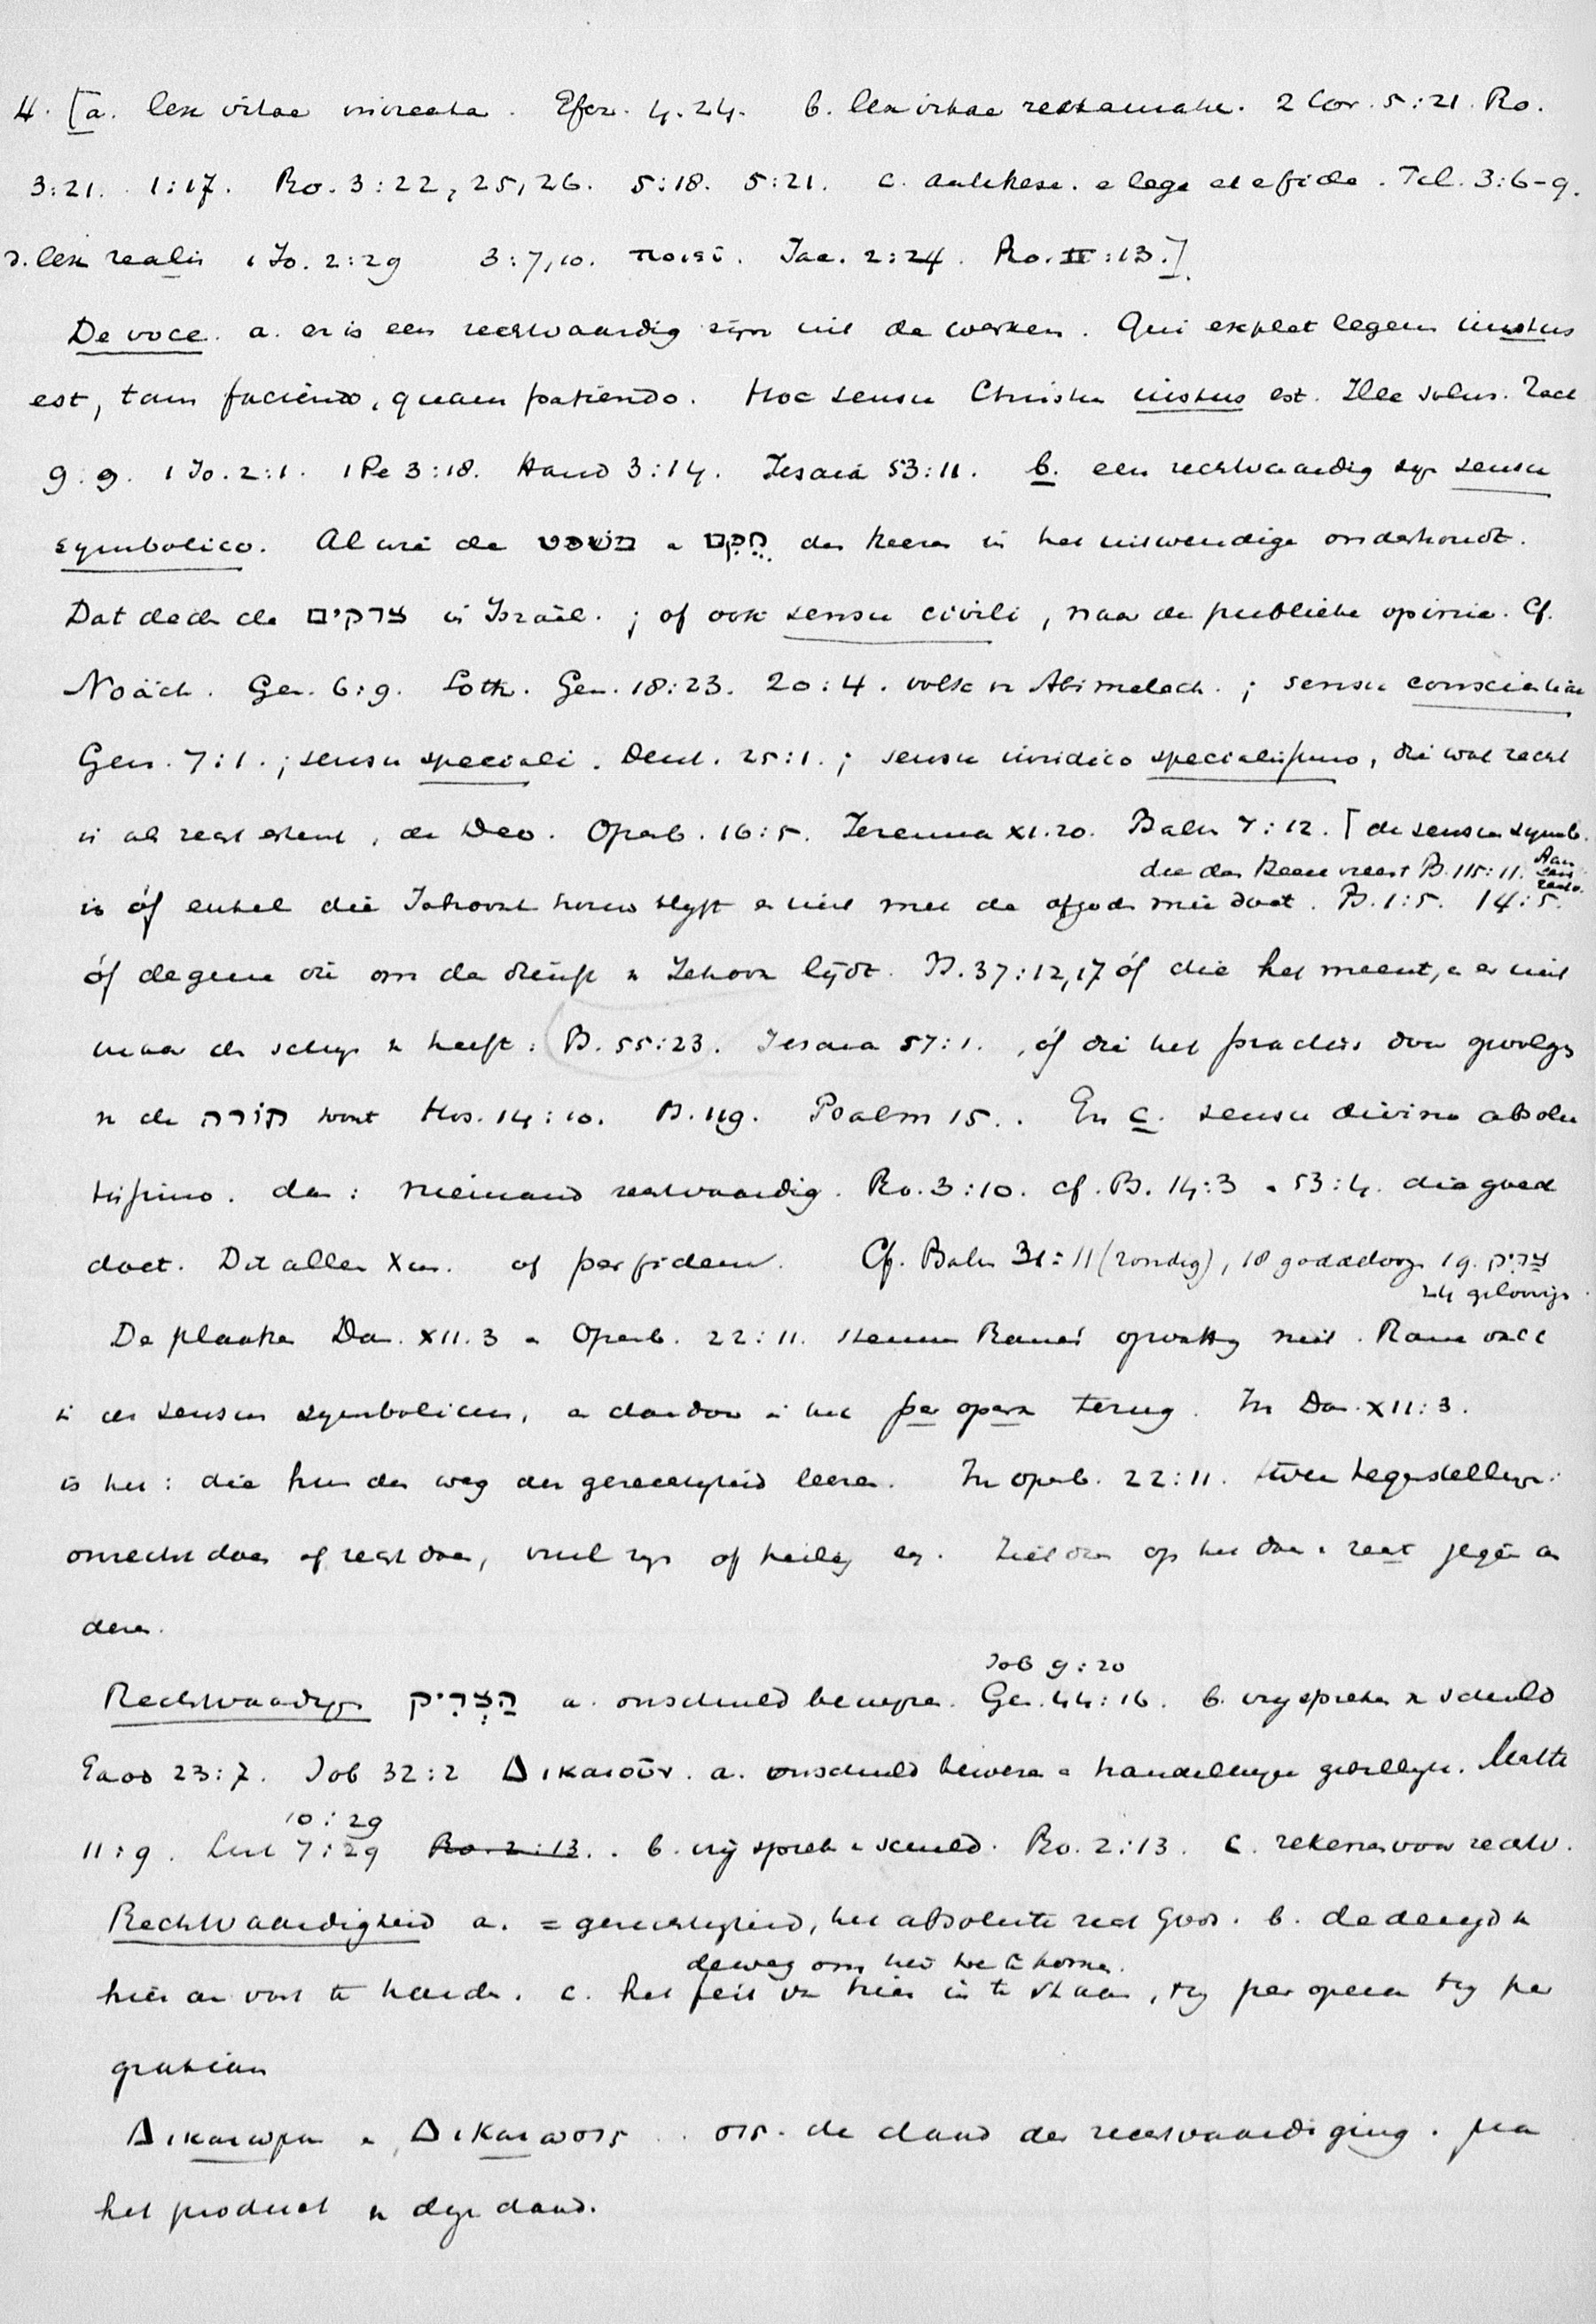 4. [a. lex vitae increata. Efez. 4.24. b. lex vitae restaurata. 2 Cor. 5:21. Ro.
3:21. 1:17. Ro. 3:22, 25, 26. 5:18. 5:21. c. antithese. e lege et e fide. Fil. 3:6-9.
d. lex realis 1 Jo. 2:29 3:7,10. ποιεῖ. Jac. 2:24. Ro. II:13.]
De voce. a. er is een rechtvaardig zijn uit de werken. Qui explet legem iustus
est, tam faciendo, quam patiendo. Hoc sensu Christus iustus est. Ille solus. Zach
9:9. 1 Jo. 2:1. 1 Pe 3:18. Hand 3:14. Jesaia 53:11. b. een rechtvaardig zijn sensu
symbolico. Al wie de משפט en חקים des Heeren in het uitwendige onderhoudt.
Dat deden de צדיקים in Israël. ; of ook sensu civili, naar de publieke opinie. Cf.
Noäch. Gen. 6:9. Loth. Gen. 18:23. 20:4. volk v. Abimelech. ; sensu conscientiae
Gen. 7:1. ; sensu speciali. Deut. 25:1. ; sensu iuridico specialissimo, die wat recht
is als recht erkent, de Deo. Openb. 16:5. Jeremia XI.20. Psalm 7:12. [de sensus symb.
die den Heere vreest Ps. 115:11. Aan
is óf enkel die Jehovah trouw blijft en niet met de afgoden mee doet. Ps. 1:5. 14:5.
óf degene die om de dienst v. Jehova lijdt. Ps. 37:12,17 óf die het meent, en er niet
maar den schijn v. heeft: Ps. 55:23. Jesaia 57:1. , óf die het praecies door gevolgen
v. de תורה toont Hos. 14:10. Ps. 119. Psalm 15. . En c. sensu divino absolu
tissimo. dan: niemand rechtvaardig. Ro. 3:10. cf. Ps. 14:3 en 53:4. die goed
doet. Dit alleen Xus. of per fidem. Cf. Psalm 31:11 (zondig), 18 goddeloozen 19. צדיק
24 geloovigen.
De plaatsen Dan. XII.3 en Openb. 22:11. steunen Rome's opvatting niet. Rome valt
in den sensus symbolicus, en daardoor in het per opera terug. In Dan. XII:3.
is het: die hun den weg der gerechtigheid leeren. In openb. 22:11. twee tegenstellingen:
onrecht doen of recht doen, vuil zijn of heilig zijn. Ziet dus op het doen v. recht jegens an
deren.
Job 9:20
Rechtvaardigen הצדיק a. onschuld bewijzen. Gen. 44:16. b. vrijspreken v. schuld
Exod 23:7. Job 32:2 Δικαιοῦν. a. onschuld bewezen en handelingen gebillijkt. Matth
10:29
11:9. Luc 7:29 Ro. 2:13. . b. vrij spreken v. schuld. Ro. 2:13. c. rekenen voor rechtv.
Rechtvaardigheid a. = gerechtigheid, het absolute recht Gods. b. de deugd v.
de weg om hier toe te komen.
hier aan vast te houden. c. het feit van hier in te staan, tzij per opera tzij per
gratiam
Δικαιωμα en Δικαιωσις . σις. de daad der rechtvaardiging. μα
het product v. deze daad.